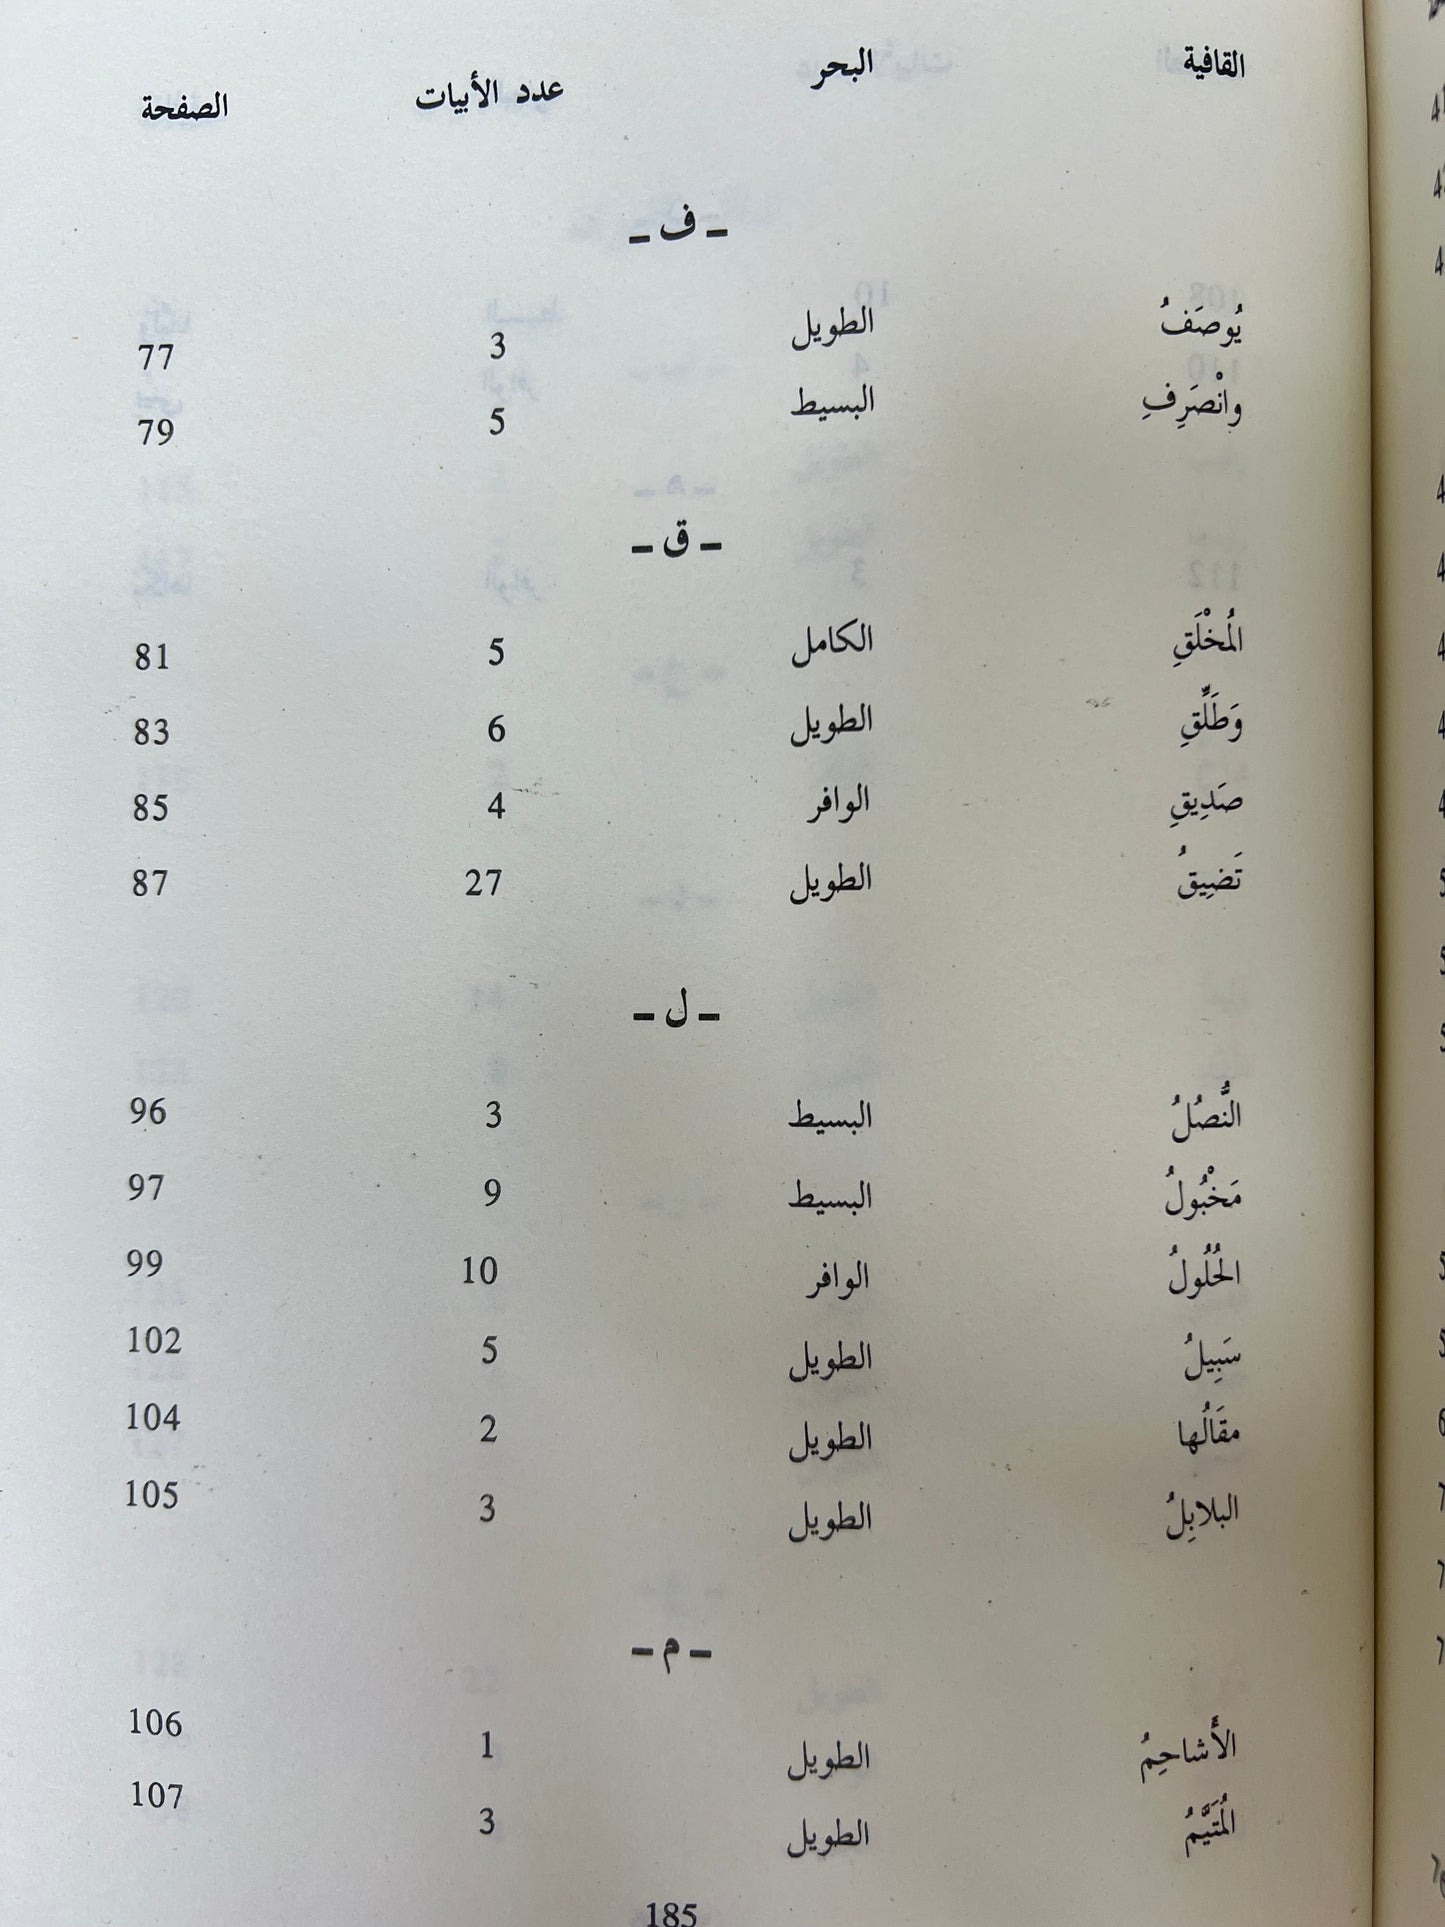 القافية البحر عدد الأبيات الصفحة
ـ ف ـ
يُوصَفُ الطويل 3 77
وانْصَرِفِ البسيط 5 79
ـ ق ـ
المُخْلَقِ الكامل 5 81
وَطَلِّقِ الطويل 6 83
صَدِيقِ الوافر 4 85
تَضِيقُ الطويل 27 87
ـ ل ـ
النُّصُلُ البسيط 3 96
مَخْبُولُ البسيط 9 97
الحُلُولُ الوافر 10 99
سَبِيلُ الطويل 5 102
مقَالُها الطويل 2 104
البلابِلُ الطويل 3 105
ـ م ـ
الأَشاحِمُ الطويل 1 106
المُتَيَّمُ الطويل 3 107
185